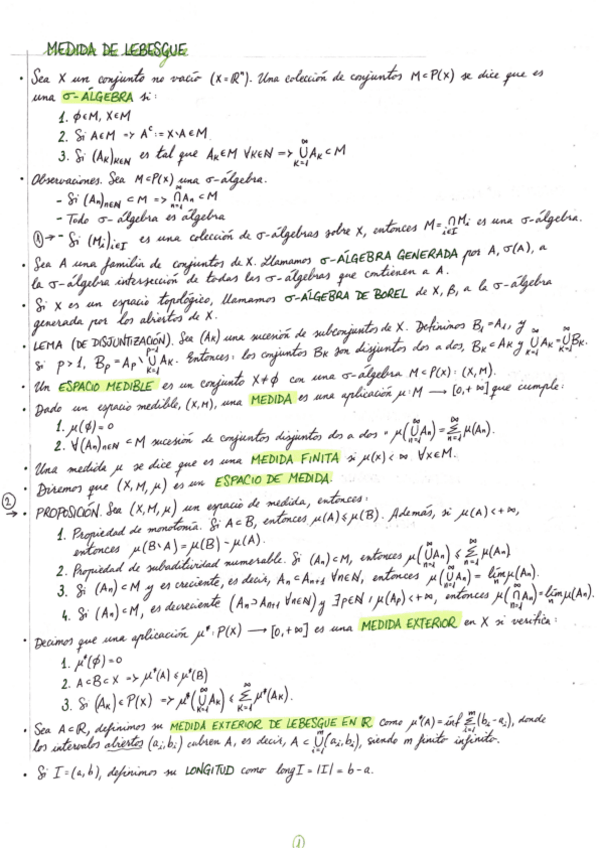 MEDIDA DE LEBESGUE
• Sea X un conjunto no vacío (X=ℝⁿ). Una colección de conjuntos M⊂P(X) se dice que es
una σ-ÁLGEBRA si:
1. ∅∈M, X∈M
2. Si A∈M => Aᶜ:= X\A∈M
3. Si (Aₖ)ₖ∈ℕ es tal que Aₖ∈M ∀k∈ℕ => ⋃ₖ₌₁^∞ Aₖ⊂M
• Observaciones. Sea M⊂P(X) una σ-álgebra.
- Si (Aₙ)ₙ∈ℕ ⊂ M => ⋂ₙ₌₁^∞ Aₙ ⊂ M
- Todo σ-álgebra es álgebra
① → - Si (Mᵢ)ᵢ∈I es una colección de σ-álgebras sobre X, entonces M = ⋂ᵢ∈I Mᵢ es una σ-álgebra.
• Sea A una familia de conjuntos de X. Llamamos σ-ÁLGEBRA GENERADA por A, σ(A), a
la σ-álgebra intersección de todas las σ-álgebras que contienen a A.
• Si X es un espacio topológico, llamamos σ-ÁLGEBRA DE BOREL de X, β, a la σ-álgebra
generada por los abiertos de X.
• LEMA (DE DISJUNTIZACIÓN). Sea (Aₖ) una sucesión de subconjuntos de X. Definimos B₁=A₁, y
si p>1, Bₚ = Aₚ \ ⋃ₖ₌₁^(p-1) Aₖ. Entonces: los conjuntos Bₖ son disjuntos dos a dos, Bₖ⊂Aₖ y ⋃ₖ₌₁^∞ Aₖ = ⋃ₖ₌₁^∞ Bₖ.
• Un ESPACIO MEDIBLE es un conjunto X≠∅ con una σ-álgebra M⊂P(X): (X,M).
• Dado un espacio medible, (X,M), una MEDIDA es una aplicación μ: M → [0,+∞] que cumple:
1. μ(∅)=0
2. ∀(Aₙ)ₙ∈ℕ ⊂ M sucesión de conjuntos disjuntos dos a dos = μ(⋃ₙ₌₁^∞ Aₙ) = ∑ₙ₌₁^∞ μ(Aₙ).
• Una medida μ se dice que es una MEDIDA FINITA si μ(x)<∞ ∀x∈M.
• Diremos que (X,M,μ) es un ESPACIO DE MEDIDA.
② → • PROPOSICIÓN. Sea (X,M,μ) un espacio de medida, entonces:
1. Propiedad de monotonía. Si A⊂B, entonces μ(A)≤μ(B). Además, si μ(A)<+∞,
entonces μ(B\A) = μ(B) - μ(A).
2. Propiedad de subaditividad numerable. Si (Aₙ)⊂M, entonces μ(⋃ₙ₌₁^∞ Aₙ) ≤ ∑ₙ₌₁^∞ μ(Aₙ)
3. Si (Aₙ)⊂M y es creciente, es decir, Aₙ⊂Aₙ₊₁ ∀n∈ℕ, entonces μ(⋃ₙ₌₁^∞ Aₙ) = limₙ μ(Aₙ).
4. Si (Aₙ)⊂M, es decreciente (Aₙ⊃Aₙ₊₁ ∀n∈ℕ) y ∃p∈ℕ / μ(Aₚ)<+∞, entonces μ(⋂ₙ₌₁^∞ Aₙ) = limₙ μ(Aₙ).
• Decimos que una aplicación μ*: P(X) → [0,+∞] es una MEDIDA EXTERIOR en X si verifica:
1. μ*(∅)=0
2. A⊂B⊂X => μ*(A)≤μ*(B)
3. Si (Aₖ)⊂P(X) => μ*(⋃ₖ₌₁^∞ Aₖ) ≤ ∑ₖ₌₁^∞ μ*(Aₖ).
• Sea A⊂ℝ, definimos su MEDIDA EXTERIOR DE LEBESGUE EN ℝ como μ*(A) = inf ∑ᵢ₌₁^m (bᵢ-aᵢ), donde
los intervalos abiertos (aᵢ,bᵢ) cubren A, es decir, A ⊂ ⋃ᵢ₌₁^m (aᵢ,bᵢ), siendo m finito infinito.
• Si I=(a,b), definimos su LONGITUD como long I = |I| = b-a.
①